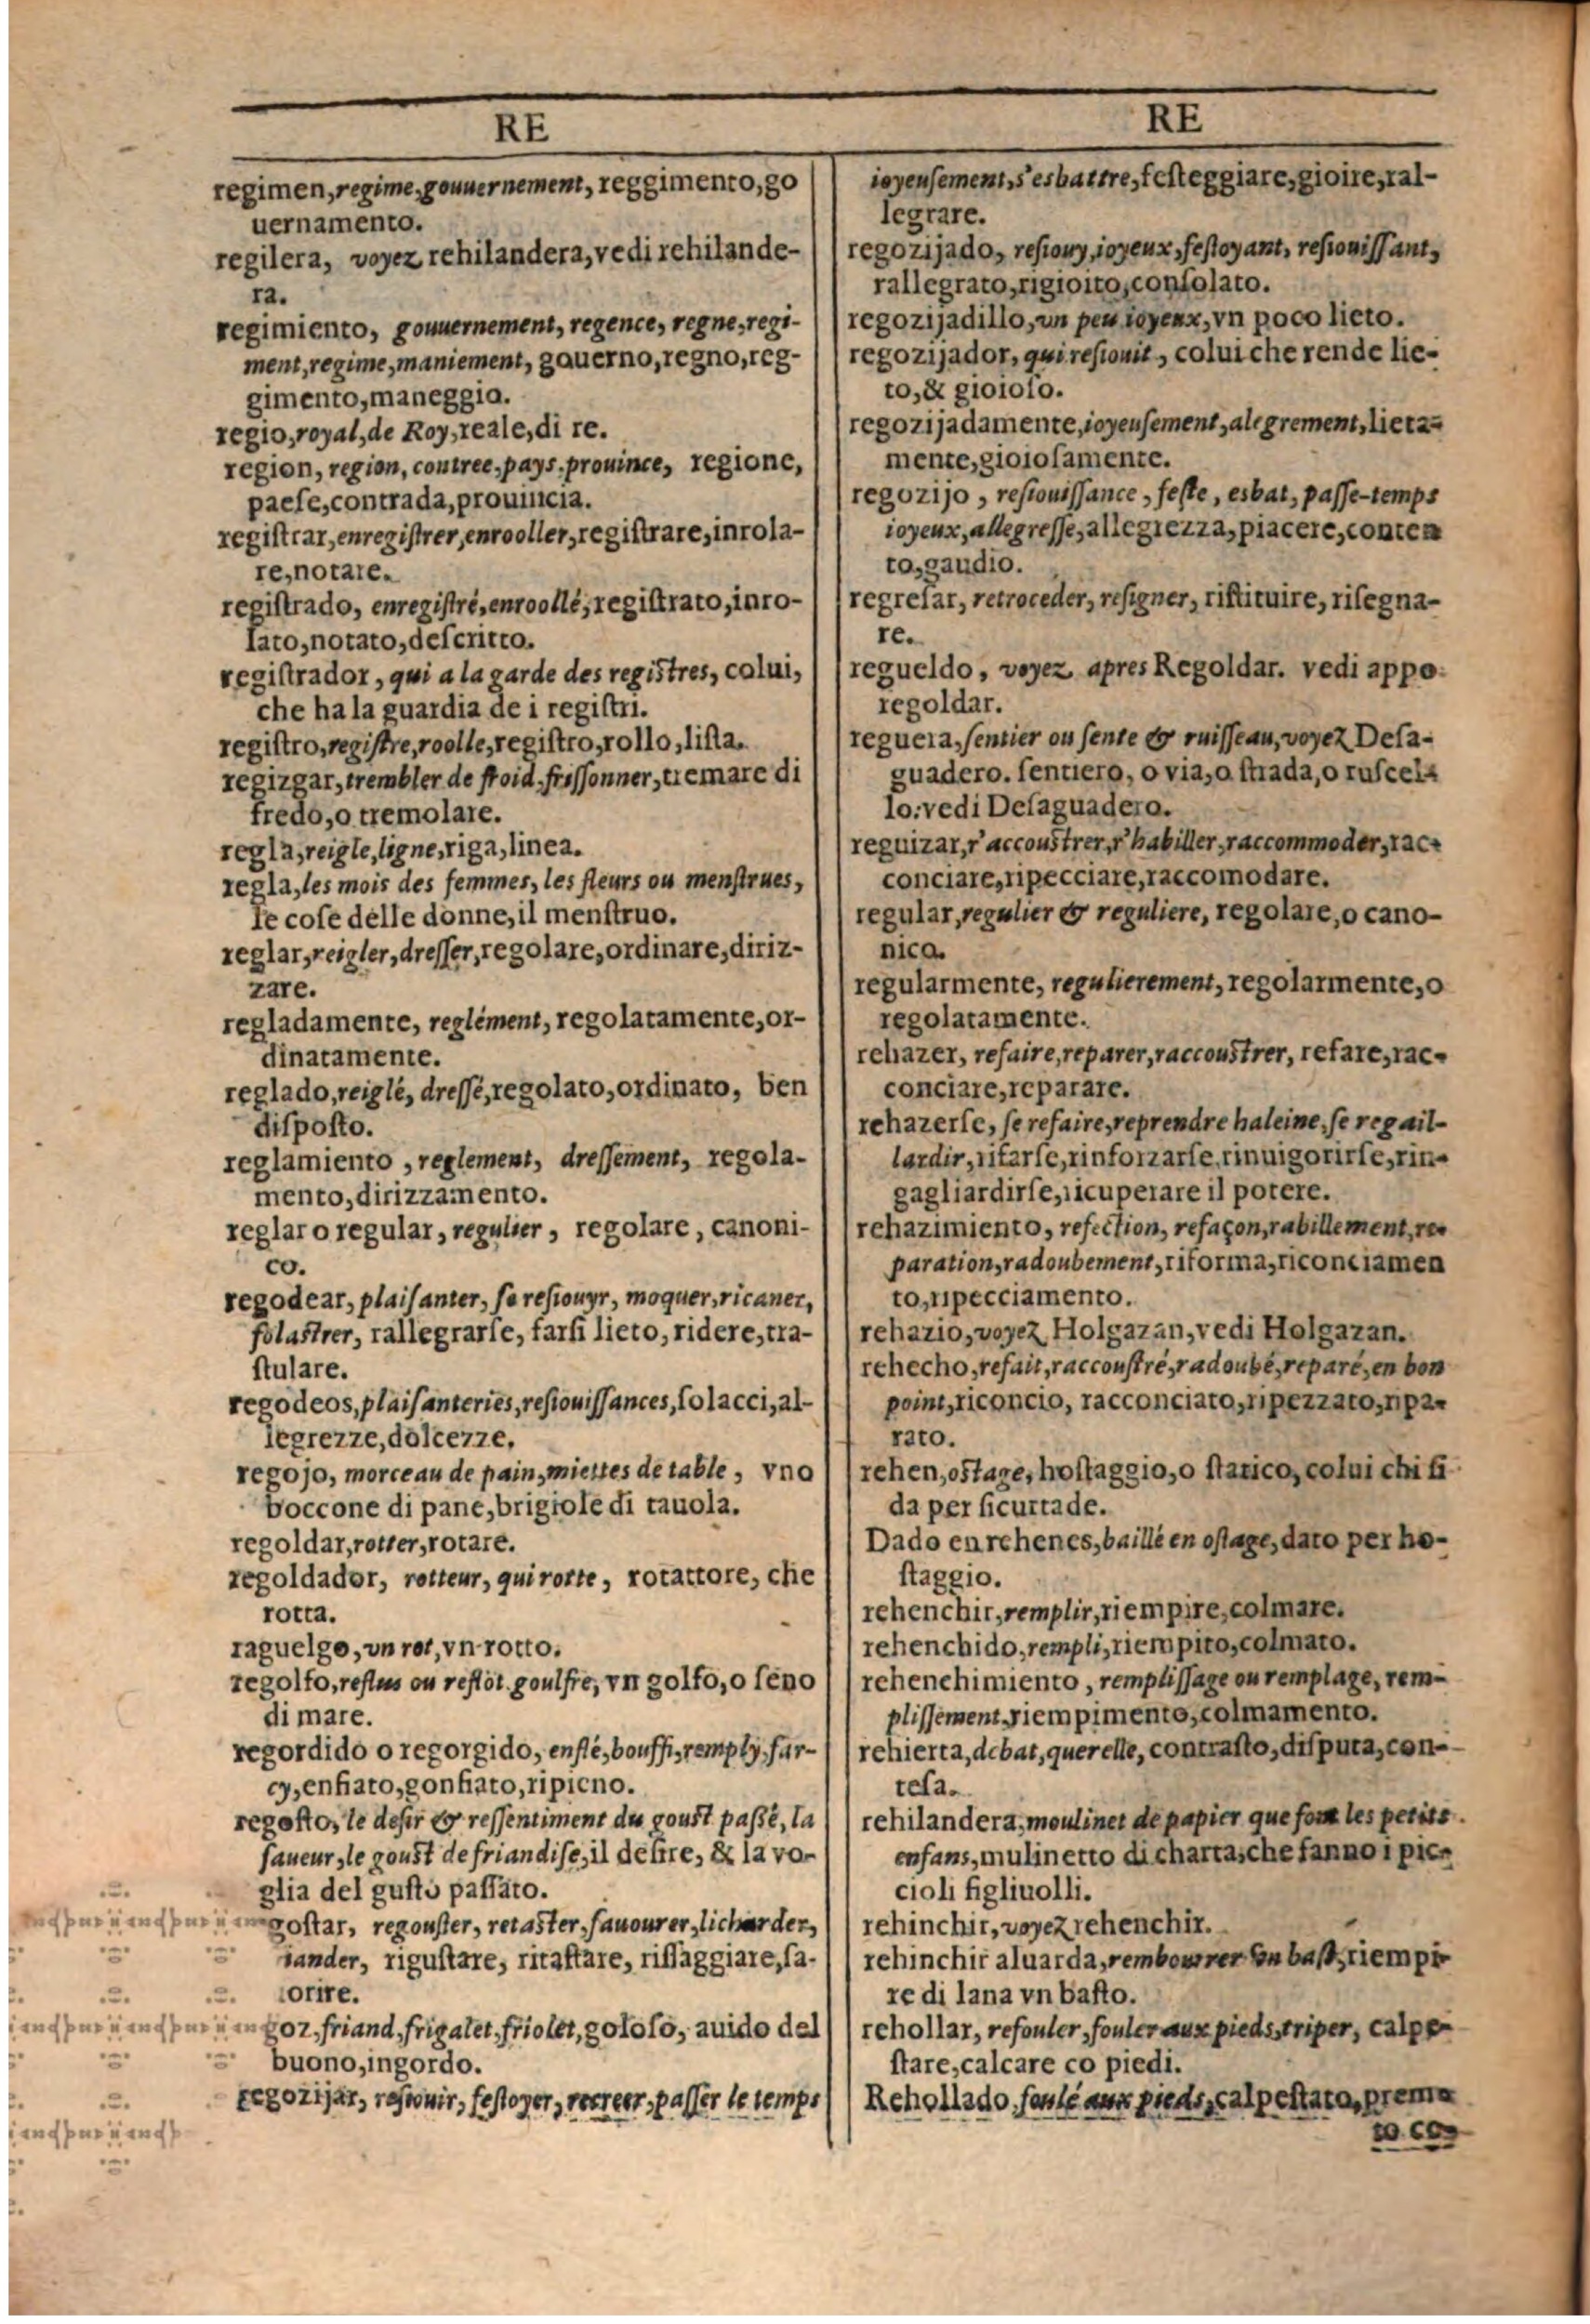 RE
regimen, regime, gouuernement, reggimento, go
uernamento.
regilera, voyez rehilandera, vedi rehilande-
ra.
regimiento, gouuernement, regence, regne, regi-
ment, regime, maniement, gouerno, regno, reg-
gimento, maneggio.
regio, royal, de Roy, reale, di re.
region, region, contree, pays, prouince, regione,
paeſe, contrada, prouincia.
regiſtrar, enregiſtrer, enrooller, regiſtrare, inrola-
re, notare.
regiſtrado, enregiſtré, enroollé, regiſtrato, inro-
lato, notato, deſcritto.
regiſtrador, qui a la garde des regiſtres, colui,
che ha la guardia de i regiſtri.
regiſtro, regiſtre, roolle, regiſtro, rollo, liſta.
regizgar, trembler de froid, friſſonner, tremare di
fredo, o tremolare.
regla, reigle, ligne, riga, linea.
regla, les mois des femmes, les fleurs ou menſtrues,
le coſe delle donne, il menſtruo.
reglar, reigler, dreſſer, regolare, ordinare, diriz-
zare.
regladamente, reglément, regolatamente, or-
dinatamente.
reglado, reiglé, dreſſé, regolato, ordinato, ben
diſpoſto.
reglamiento, reglement, dreſſement, regola-
mento, dirizzamento.
reglar o regular, regulier, regolare, canoni-
co.
regodear, plaiſanter, ſe reſiouyr, moquer, ricaner,
folaſtrer, rallegrarſe, farſi lieto, ridere, tra-
ſtulare.
regodeos, plaiſanteries, reſiouiſſances, ſolacci, al-
legrezze, dolcezze.
regojo, morceau de pain, miettes de table, vno
boccone di pane, brigiole di tauola.
regoldar, rotter, rotare.
regoldador, rotteur, qui rotte, rotattore, che
rotta.
raguelgo, vn rot, vn rotto.
regolfo, reflus ou reflot. goulfre, vn golfo, o ſeno
di mare.
regordido o regorgido, enflé, bouffi, remply, far-
cy, enfiato, gonfiato, ripieno.
regoſto, le deſir & reſſentiment du gouſt paſſé, la
ſaueur, le gouſt de friandiſe, il deſire, & la vo-
glia del guſto paſſato.
goſtar, regouſter, retaſter, ſauourer, licharder,
iander, riguſtare, ritaſtare, riſſaggiare, ſa-
orire.
goz, friand, frigalet, friolet, goloſo, auido del
buono, ingordo.
regozijar, reſiouir, feſtoyer, recreer, paſſer le temps
RE
ioyeuſement, s'esbattre, feſteggiare, gioire, ral-
legrare.
regozijado, reſiouy, ioyeux, feſtoyant, reſiouiſſant,
rallegrato, rigioito, conſolato.
regozijadillo, vn peu ioyeux, vn poco lieto.
regozijador, qui reſiouit, colui che rende lie-
to, & gioioſo.
regozijadamente, ioyeuſement, alegrement, lieta-
mente, gioioſamente.
regozijo, reſiouiſſance, feſte, esbat, paſſe-temps
ioyeux, allegreſſe, allegrezza, piacere, conten
to, gaudio.
regreſar, retroceder, reſigner, riſtituire, riſegna-
re.
regueldo, voyez apres Regoldar. vedi appo
regoldar.
reguera, ſentier ou ſente & ruiſſeau, voyez Deſa-
guadero. ſentiero, o via, o ſtrada, o ruſcel-
lo: vedi Deſaguadero.
reguizar, r'accouſtrer, r'habiller, raccommoder, rac-
conciare, ripecciare, raccomodare.
regular, regulier & reguliere, regolare, o cano-
nico.
regularmente, regulierement, regolarmente, o
regolatamente.
rehazer, refaire, reparer, raccouſtrer, refare, rac-
conciare, reparare.
rehazerſe, ſe refaire, reprendre haleine, ſe regail-
lardir, rifarſe, rinforzarſe, rinuigorirſe, rin-
gagliardirſe, ricuperare il potere.
rehazimiento, refection, refaçon, rabillement, re-
paration, radoubement, riforma, riconciamen
to, ripecciamento.
rehazio, voyez Holgazan, vedi Holgazan.
rehecho, refait, raccouſtré, radoubé, reparé, en bon
point, riconcio, racconciato, ripezzato, ripa-
rato.
rehen, oſtage, hoſtaggio, o ſtatico, colui chi ſi
da per ſicurtade.
Dado en rehenes, baillé en oſtage, dato per ho-
ſtaggio.
rehenchir, remplir, riempire, colmare.
rehenchido, rempli, riempito, colmato.
rehenchimiento, rempliſſage ou remplage, rem-
pliſſement, riempimento, colmamento.
rehierta, debat, querelle, contraſto, diſputa, con-
teſa.
rehilandera, moulinet de papier que font les petits
enfans, mulinetto di charta, che fanno i pic-
cioli figliuolli.
rehinchir, voyez rehenchir.
rehinchir aluarda, rembourrer vn baſt, riempi-
re di lana vn baſto.
rehollar, refouler, fouler aux pieds, triper, calpe-
ſtare, calcare co piedi.
Rehollado, foulé aux pieds, calpeſtato, premu
to co-